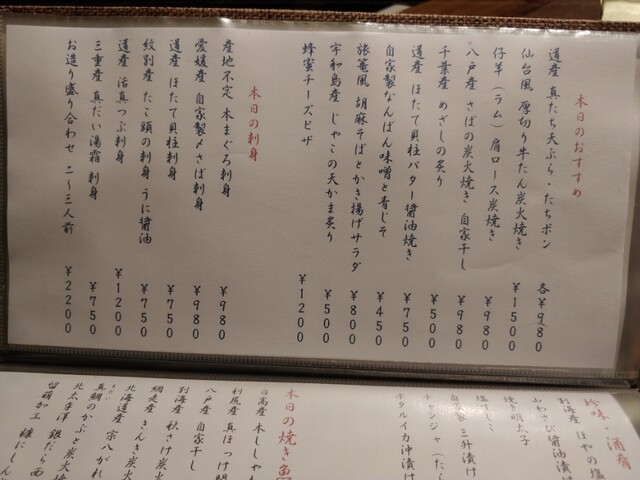 本日のおすすめ
道産 真たち天ぷら・たちポン 各¥980
仙台風 厚切り牛たん炭火焼き ¥1500
仔羊(ラム)肩ロース炭焼き ¥980
八戸産 さばの炭火焼き 自家干し ¥980
千葉産 めざしの炙り ¥500
道産 ほたて貝柱バター醤油焼き ¥750
自家製なんばん味噌と青じそ ¥450
旅篭風 胡麻そばとかき揚げサラダ ¥800
宇和島産 じゃこの天かま炙り ¥500
蜂蜜チーズピザ ¥1200
本日の刺身
産地不定 本まぐろ刺身 ¥980
愛媛産 自家製〆さば刺身 ¥980
道産 ほたて貝柱刺身 ¥750
紋別産 たこ頭の刺身 うに醤油 ¥750
道産 活真つぶ刺身 ¥1200
三重産 真だい湯霜刺身 ¥750
お造り盛り合わせ 二〜三人前 ¥2200
珍味・酒肴
別海産 ほやの塩
山わさび醤油漬け
焼き明太子
自家製 三升漬け
チャンジャ(たら
ホタルイカ沖漬け
本日の焼き魚
日高産 本ししゃも
利尻産 真ほっけ開
八戸産 自家干し
別海産 秋さけ炭火
網走産 きんき炭火
北海道産 宗八がれ
真鯛のかぶと炭火焼
北太平洋 銀だら西
留萌加工 糠にしん